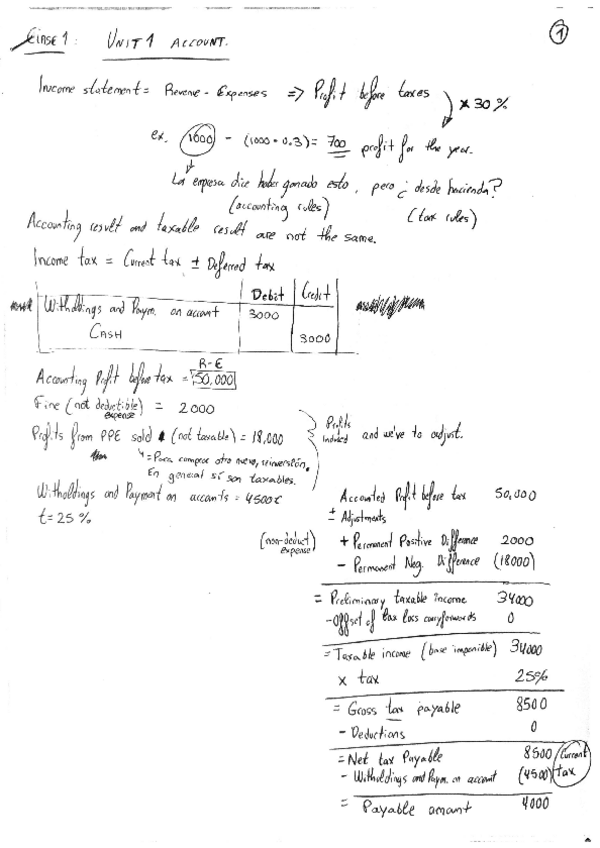 Clase 1: UNIT 1 ACCOUNT.
1
Income statement = Revenue - Expenses => Profit before taxes
x 30%
ex. 1000 - (1000 · 0.3) = 700 profit for the year.
La empresa dice haber ganado esto, pero ¿desde hacienda?
(accounting rules) (tax rules)
Accounting result and taxable result are not the same.
Income tax = Current tax ± Deferred tax
Debit Credit
Witholdings and Paym. on account 3000
CASH 3000
R-E
Accounting Profit before tax = 50,000
Fine (not deductible) = 2000
expense
Profits from PPE sold (not taxable) = 18,000
Profits included and we've to adjust.
= Para comprar otro nuevo, reinversión.
En general sí son taxables.
Witholdings and Payment on accounts = 4500€
t = 25%
Accounted Profit before tax 50,000
± Adjustments
(non-deduct expense) + Permanent Positive Difference 2000
- Permanent Neg. Difference (18000)
= Preliminary taxable income 34000
- Offset of tax loss carryforwards 0
= Taxable income (base imponible) 34000
x tax 25%
= Gross tax payable 8500
- Deductions 0
= Net tax Payable 8500 (current tax)
- Witholdings and Paym. on account (4500)
= Payable amount 4000